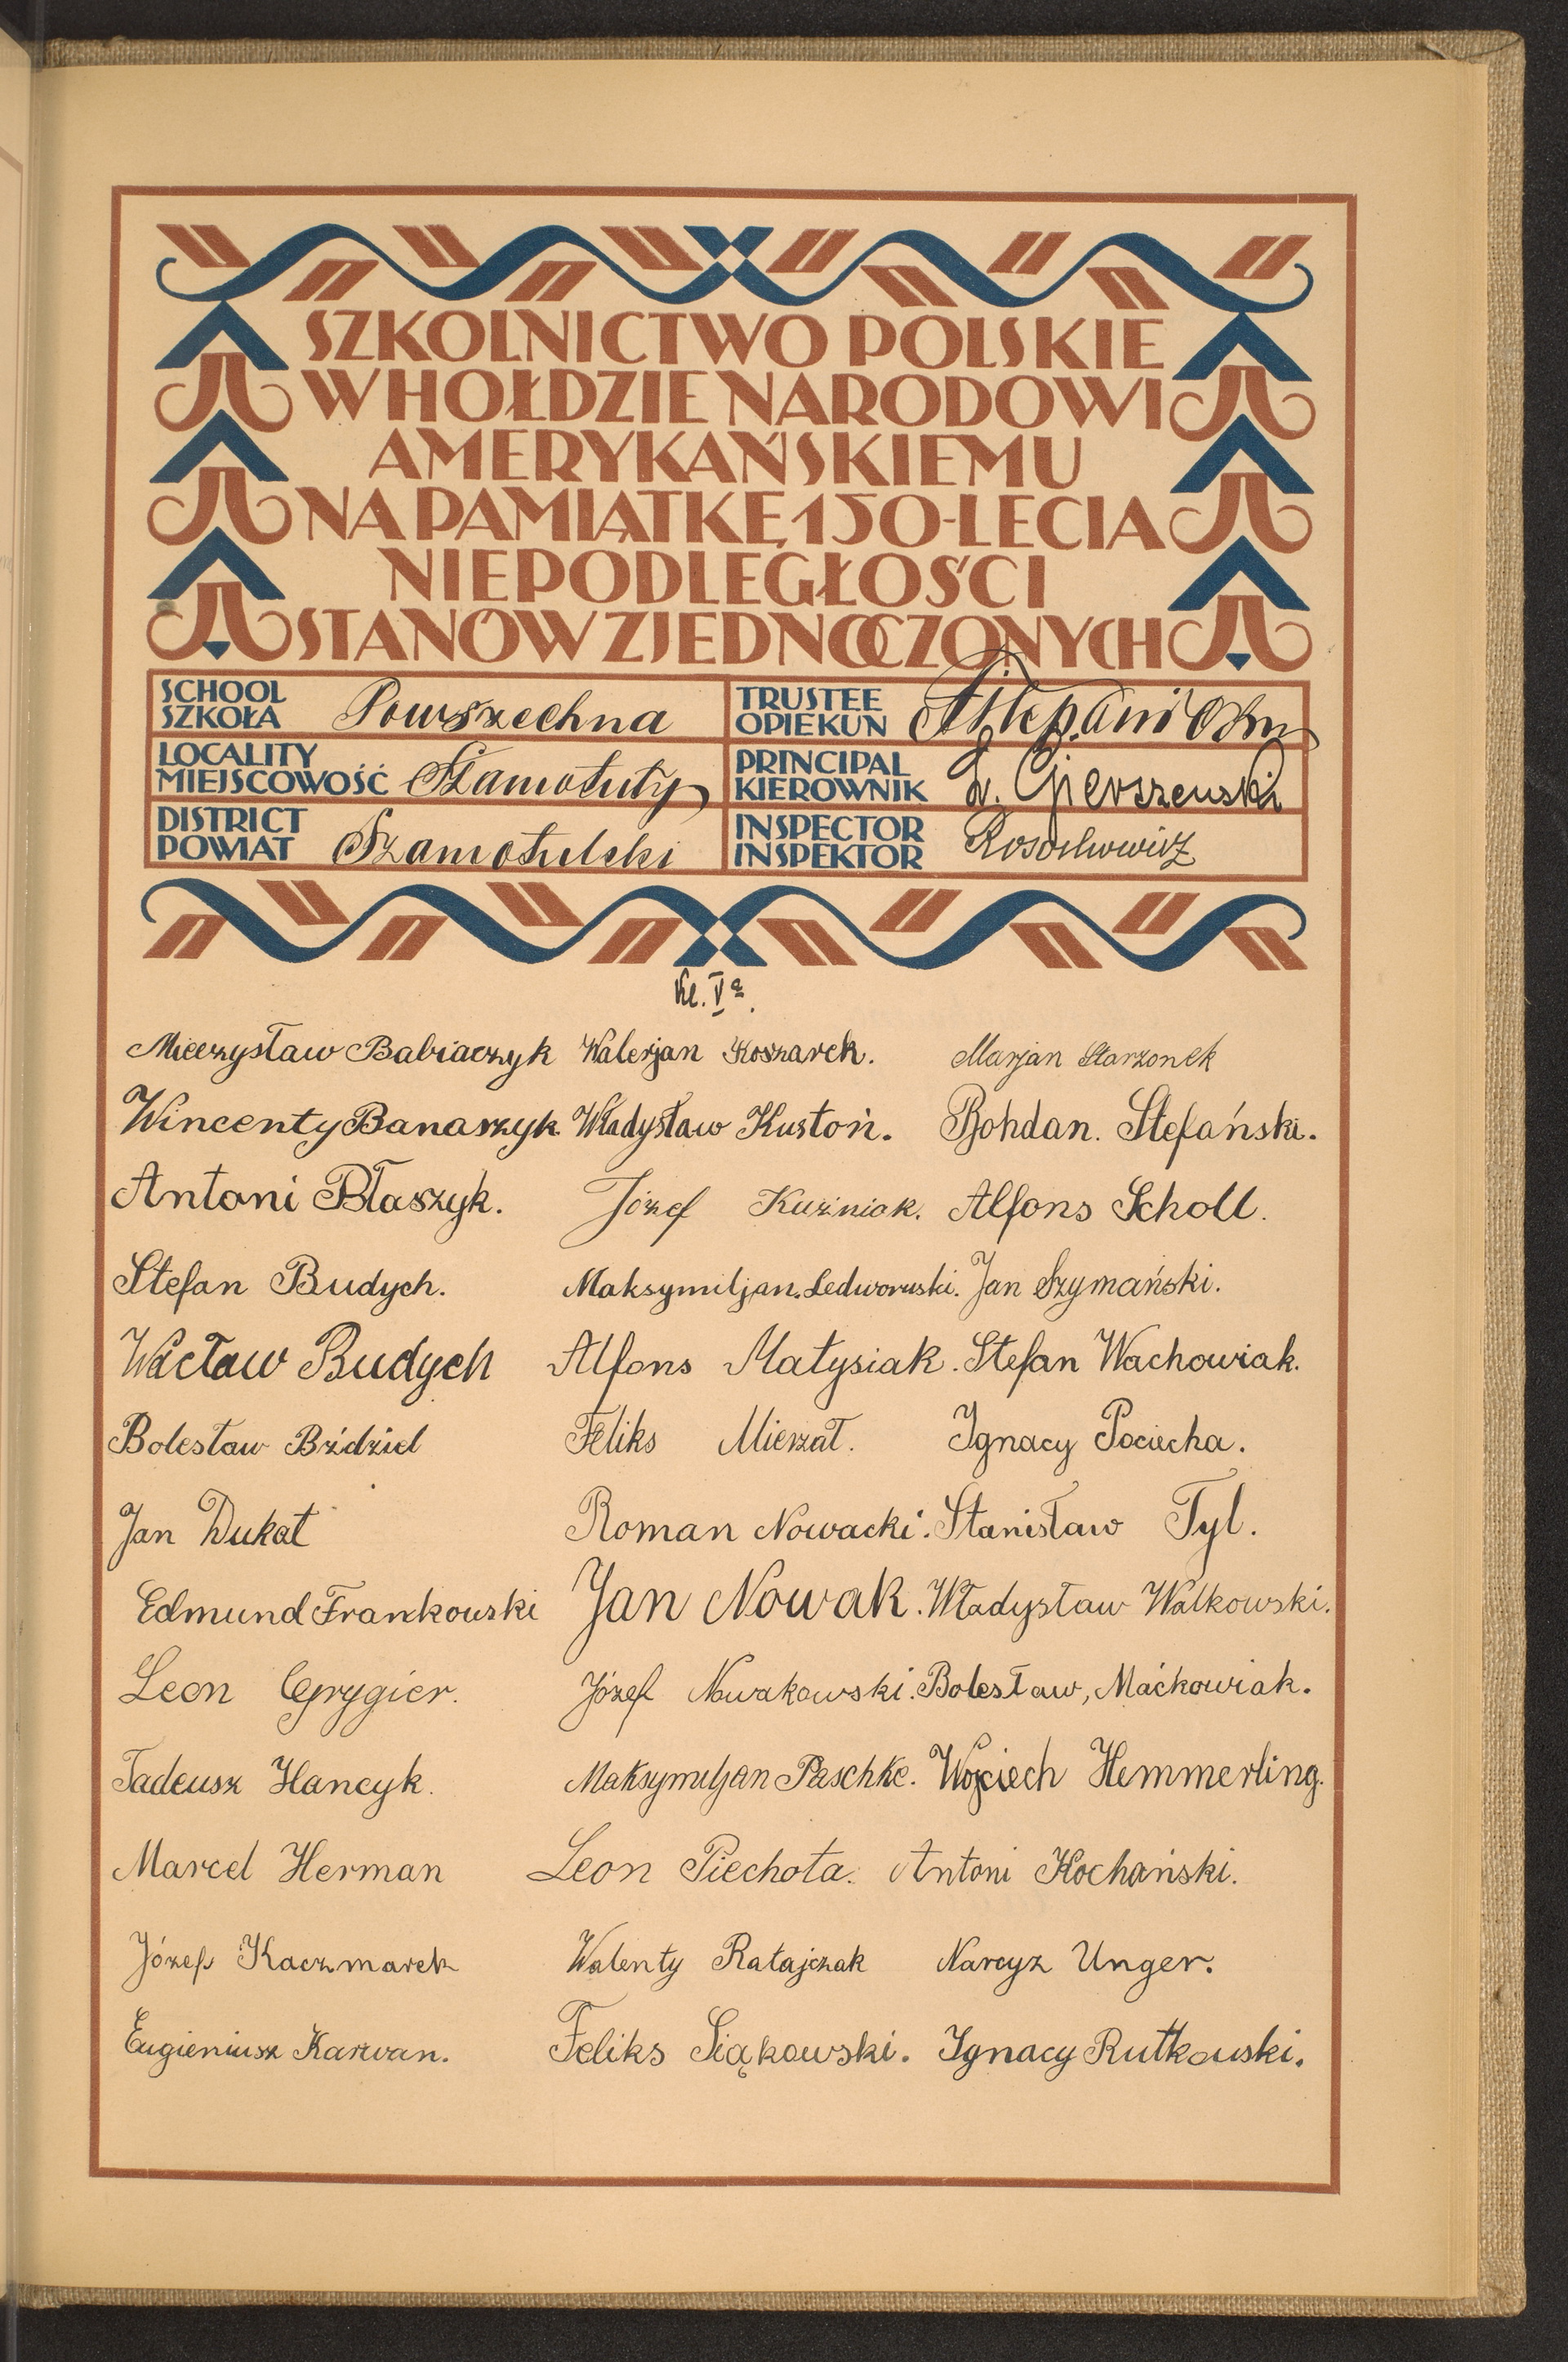 SZKOLNICTWO POLSKIE
W HOŁDZIE NARODOWI
AMERYKAŃSKIEMU
NA PAMIĄTKĘ 150-LECIA
NIEPODLEGŁOŚCI
STANÓW ZJEDNOCZONYCH
SCHOOL
SZKOŁA Powszechna
LOCALITY
MIEJSCOWOŚĆ Szamotuły
DISTRICT
POWIAT Szamotulski
TRUSTEE
OPIEKUN
PRINCIPAL
KIEROWNIK L. Gierszewski
INSPECTOR
INSPEKTOR
Kl. Va.
Mieczysław Babiaczyk Walerjan Koszarek. Marjan Starzonek
Wincenty Banaszyk. Władysław Kustoń. Bohdan. Stefański.
Antoni Błaszyk. Józef Kuźniak. Alfons Scholl.
Stefan Budych. Maksymiljan. Ledworuski. Jan Szymański.
Wacław Budych Alfons Matysiak. Stefan Wachowiak.
Bolesław Bździel Feliks Mierzał. Ignacy Pociecha.
Jan Dukat Roman Nowacki. Stanisław Tyl.
Edmund Frankowski Jan Nowak. Władysław Walkowski.
Leon Grygier. Józef Nowakowski. Bolesław, Maćkowiak.
Tadeusz Hancyk. Maksymiljan Paschke. Wojciech Hemmerling.
Marcel Herman Leon Piechota. Antoni Kochański.
Józef Kaczmarek Walenty Ratajczak Narcyz Unger.
Eugieniusz Karwan. Feliks Siąkowski. Ignacy Rutkowski.